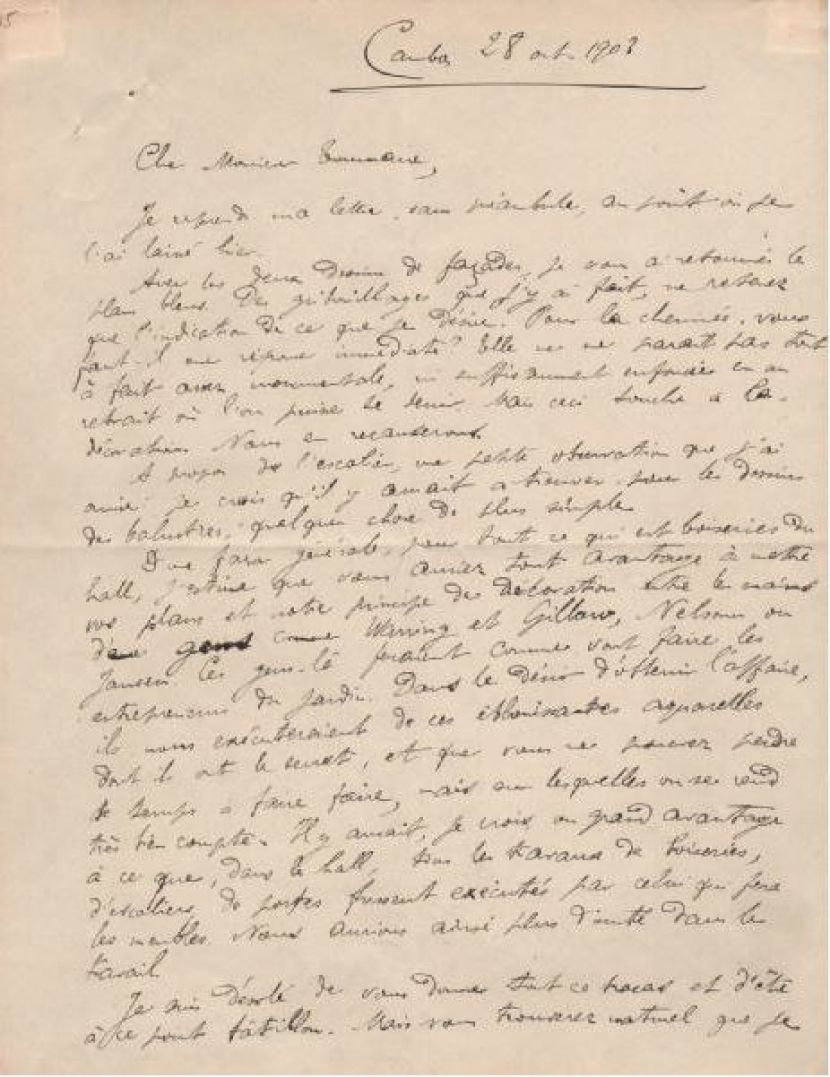 Cambo 28 oct. 1903
Cher Monsieur Tournaire,
Je reprends ma lettre, sans préambule, au point où je
l'ai laissé hier.
Avec les deux dessins de façades, je vous ai retourné le
plan bleu. Des gribouillages que j'y ai fait, ne retenez
que l'indication de ce que je désire. Pour la cheminée, vous
faut-il une réponse immédiate? Elle ne me parait pas tout
à fait assez monumentale, ni suffisamment enfoncée en un
retrait où l'on puisse se tenir. Mais ceci touche à la
décoration. Nous en recauserons.
A propos de l'escalier, une petite observation que j'ai
omise: je crois qu'il y aurait à trouver, pour les dessins
des balustres, quelque chose de plus simple.
D'une façon générale, pour tout ce qui est boiseries du
hall, j'estime que vous auriez tout avantage à mettre
vos plans et notre principe de décoration entre les mains
de gens comme Warring et Gillow, Nelson ou
Jansen. Ces gens-là feraient comme vont faire les
entrepreneurs du jardin. Dans le désir d'obtenir l'affaire,
ils nous exécuteraient de ces éblouissantes aquarelles
dont ils ont le secret, et que vous ne pouvez perdre
le temps à faire faire, mais sur lesquelles on se rend
très bien compte. Il y aurait, je crois, un grand avantage
à ce que, dans le hall, tous les travaux de boiseries,
d'escaliers, de portes fussent exécutés par celui qui fera
les meubles. Nous aurions ainsi plus d'unité dans le
travail.
Je suis désolé de vous donner tout ce tracas et d'être
à ce point tâtillon. Mais vous trouverez naturel que je